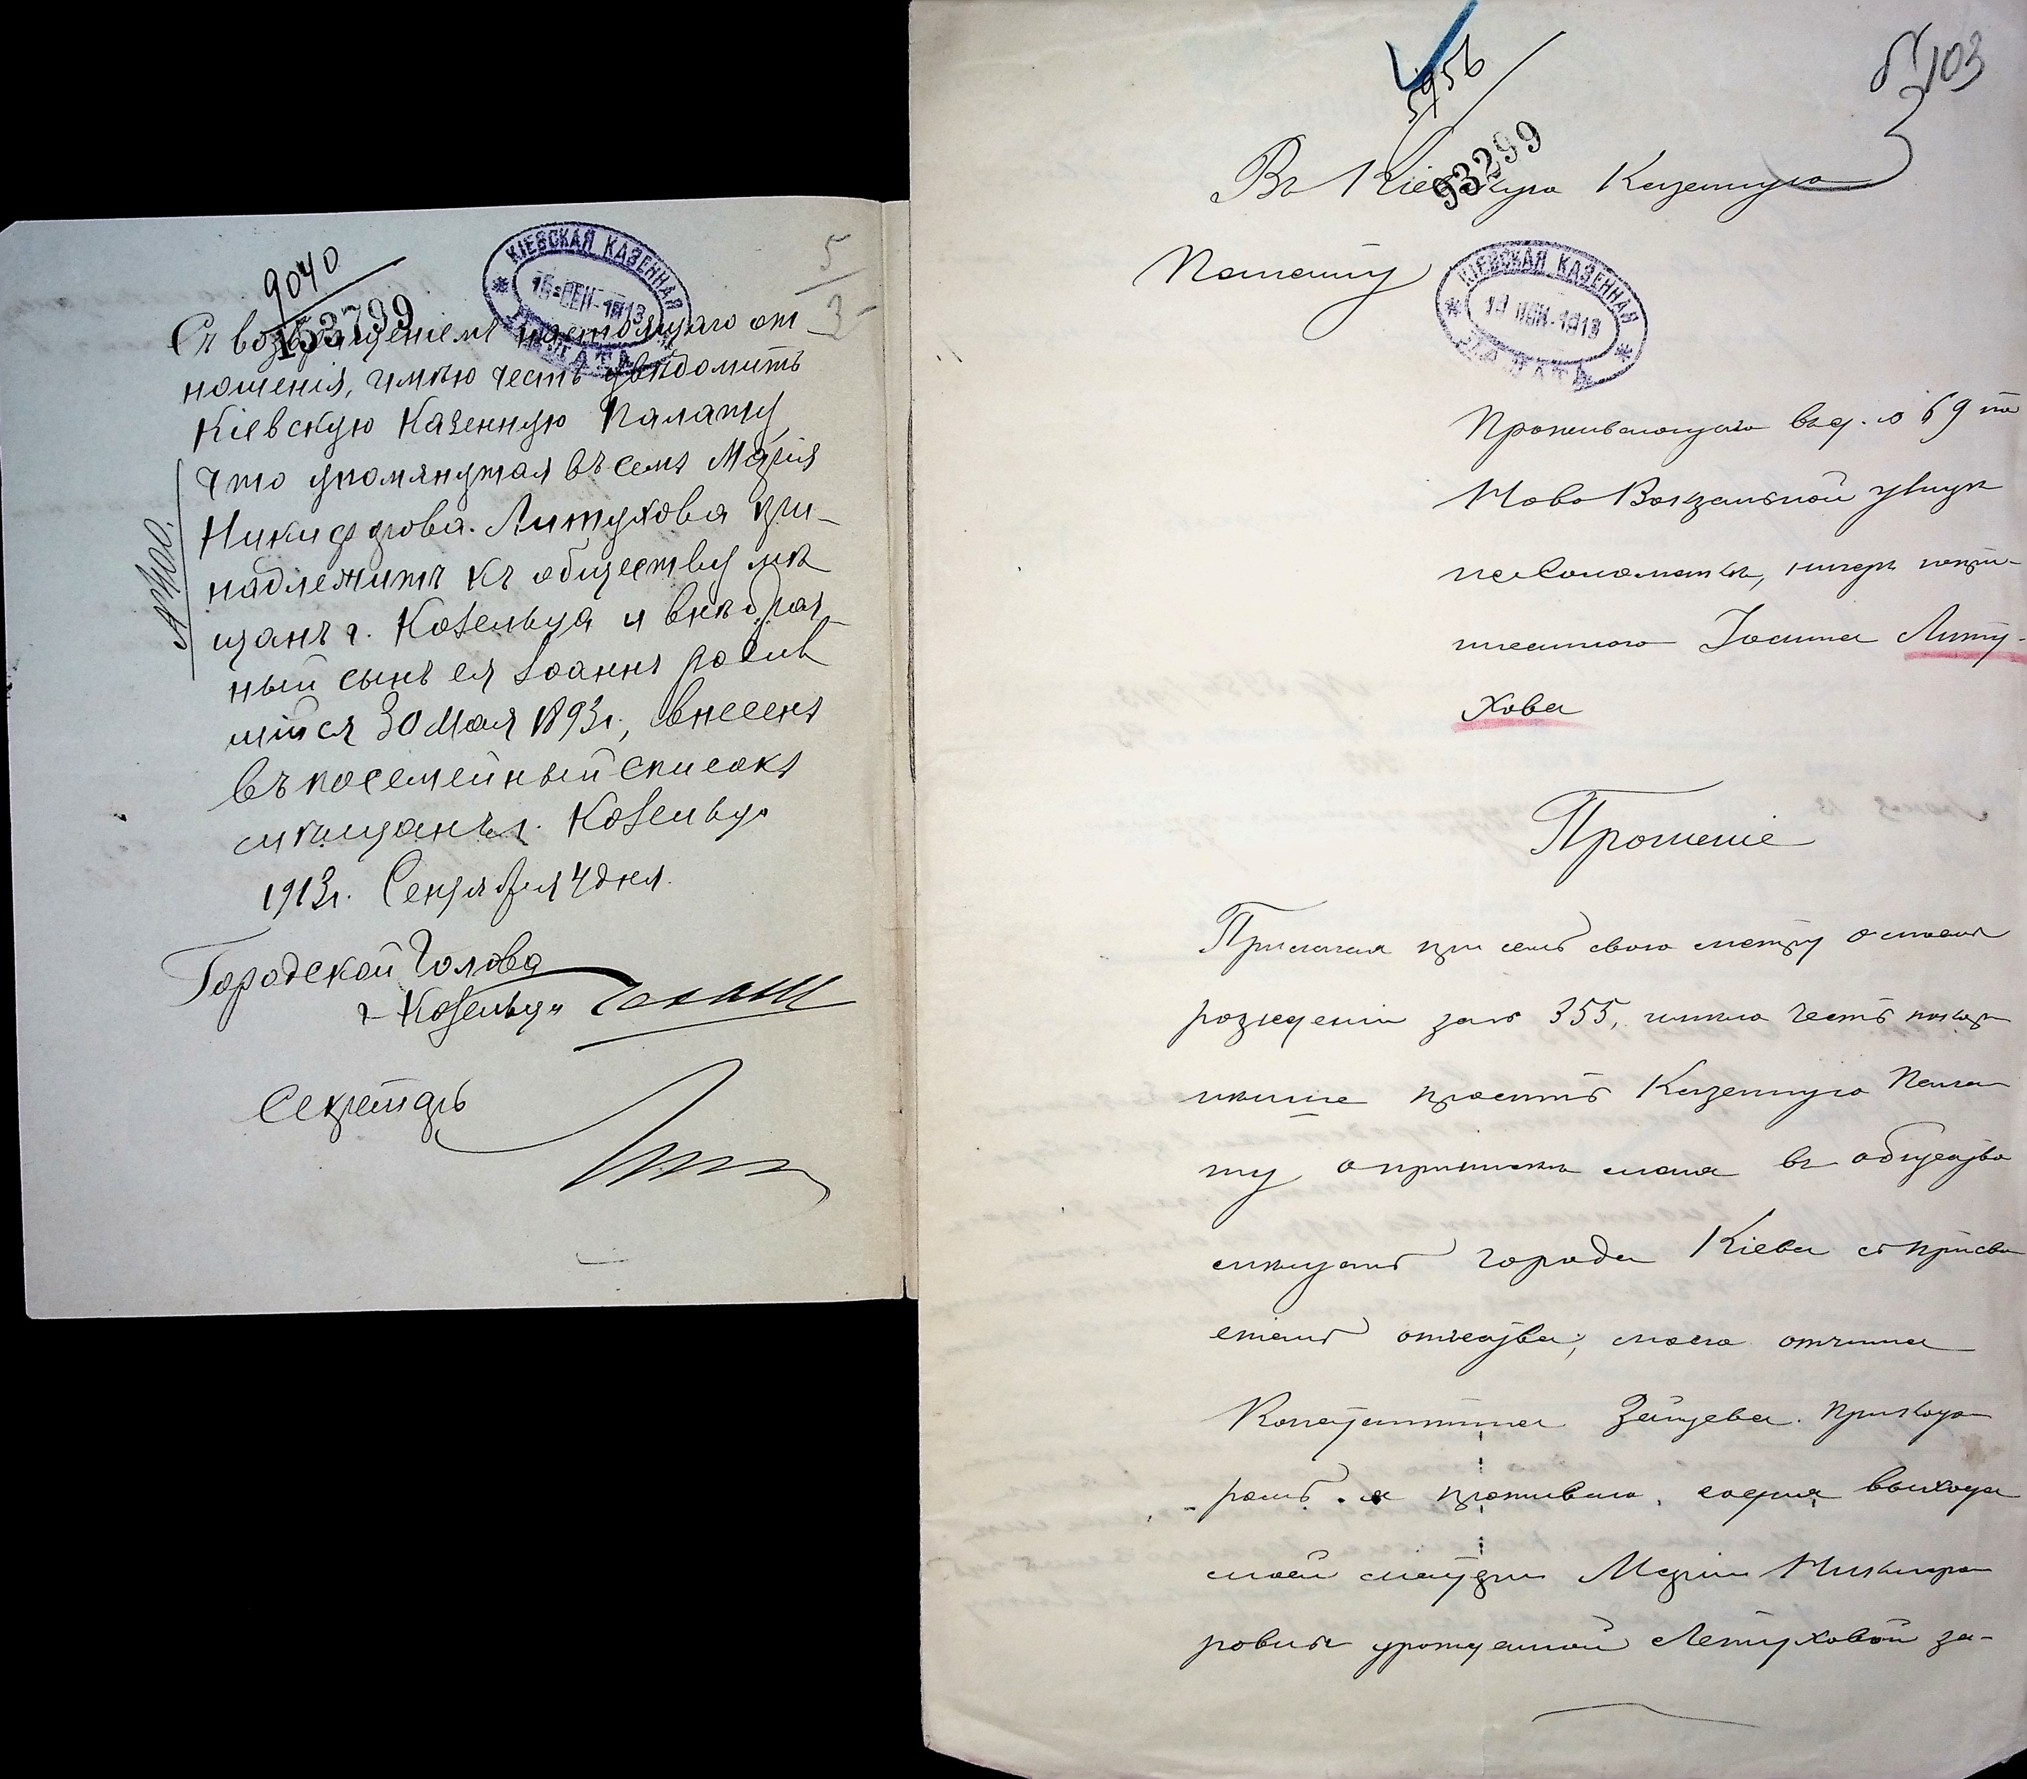 9040
153799
КІЕВСКАЯ КАЗЕННАЯ ПАЛАТА
16 СЕН. 1913
5
3
Съ возвращеніемъ настоящаго от
ношенія, имѣю честь увѣдомить
Кіевскую Казенную Палату,
что упомянутая въ семъ Марія
Никифорова Литухова при-
надлежитъ къ обществу мѣ
щанъ г. Козельца и внѣбрач
ный сынъ ея Іоаннъ родив
шійся 30 Мая 1893 г., внесенъ
въ посемейный списокъ
мѣщанъ г. Козельца
1913 г. Сентября 4 дня.
Городской Голова
г. Козельца
Секретарь
5956
93299
103
Въ Кіевскую Казенную
Палату
КІЕВСКАЯ КАЗЕННАЯ ПАЛАТА
1913
Проживающаго въ д. № 69 по
Ново Вокзальной улицѣ
Іоанна Литу-
хова
Прошеніе
Прилагая при семъ свою метрику о моемъ
рожденіи за № 355, имѣю честь покор
нѣйше просить Казенную Пала
ту о припискѣ меня въ общество
мѣщанъ города Кіева съ присво
еніемъ отчества, моего отчима
Константина Зайцева. при кото
ромъ я проживаю, со дня выхода
моей матери Маріи Никифо
ровны урожденной Летуховой за-